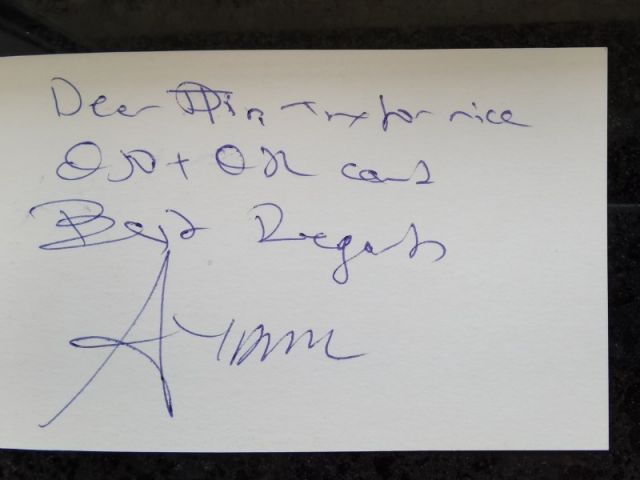 Dear Tnx for nice
QSO + QSL card
Best Regards